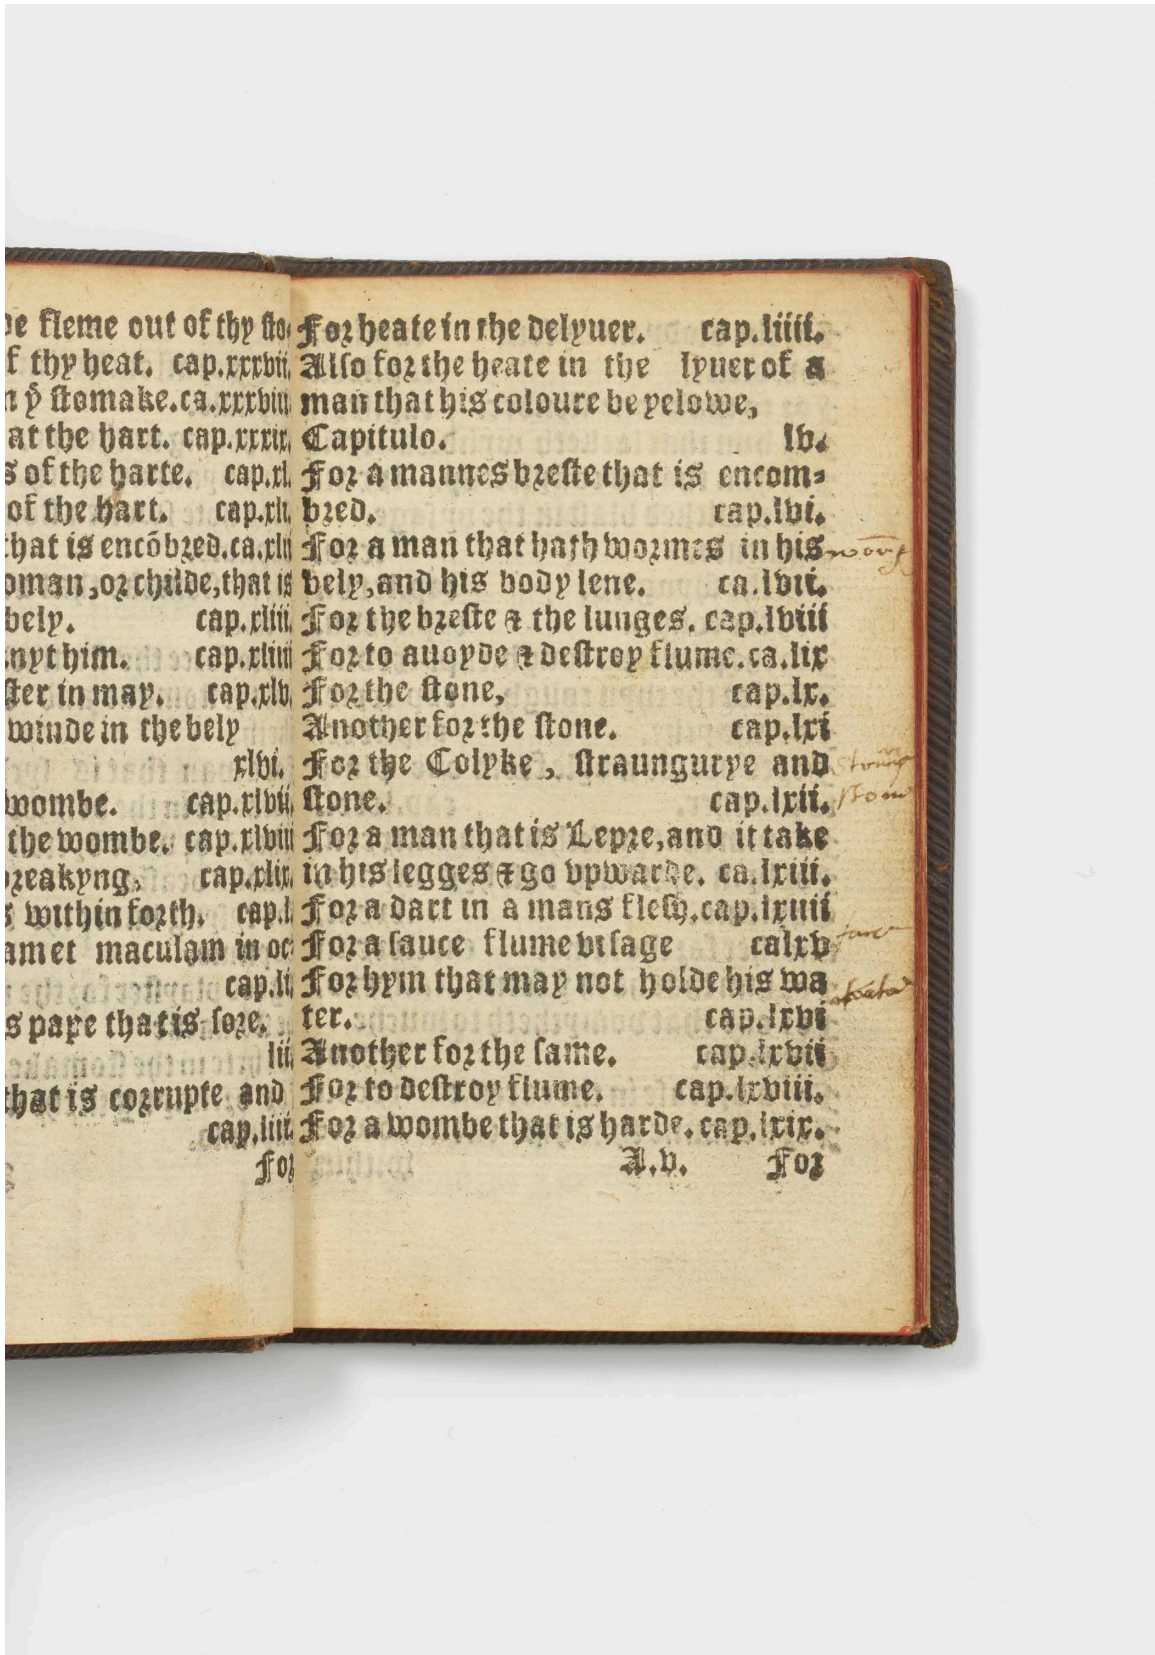 de fleme out of thy sto-
f thy heat. cap.xxxvii.
n yͤ stomake.ca.xxxviii
at the hart. cap.xxxix.
s of the harte. cap.xl.
of the hart. cap.xli.
that is encōbred.ca.xlii
oman,or childe,that is
bely. cap.xliii.
nyt him. cap.xliiii
ster in may. cap.xlv.
winde in the bely
xlvi.
wombe. cap.xlvii
the wombe. cap.xlviii
breakyng, cap.xlix.
s within forth. cap.l
amet maculam in oc
cap.li
s pape that is sore.
lii
that is corrupte and
cap.liii.
For
For heate in the delyuer. cap.liiii.
Also for the heate in the lyuer of a
man that his coloure be yelowe,
Capitulo. lv.
For a mannes breste that is encom-
bred. cap.lvi.
For a man that hath wormes in his
bely,and his body lene. ca.lvii.
For the breste & the lunges. cap.lviii
For to auoyde & destroy flume.ca.lix
For the stone, cap.lx.
Another for the stone. cap.lxi
For the Colyke, straungurye and
stone. cap.lxii.
For a man that is Lepre,and it take
in his legges & go vpwarde. ca.lxiii.
For a dart in a mans flesh.cap.lxiiii
For a sauce flume visage calxv
For hym that may not holde his wa
ter. cap.lxvi
Another for the same. cap.lxvii
For to destroy flume. cap.lxviii.
For a wombe that is harde. cap.lxix.
A.v. For